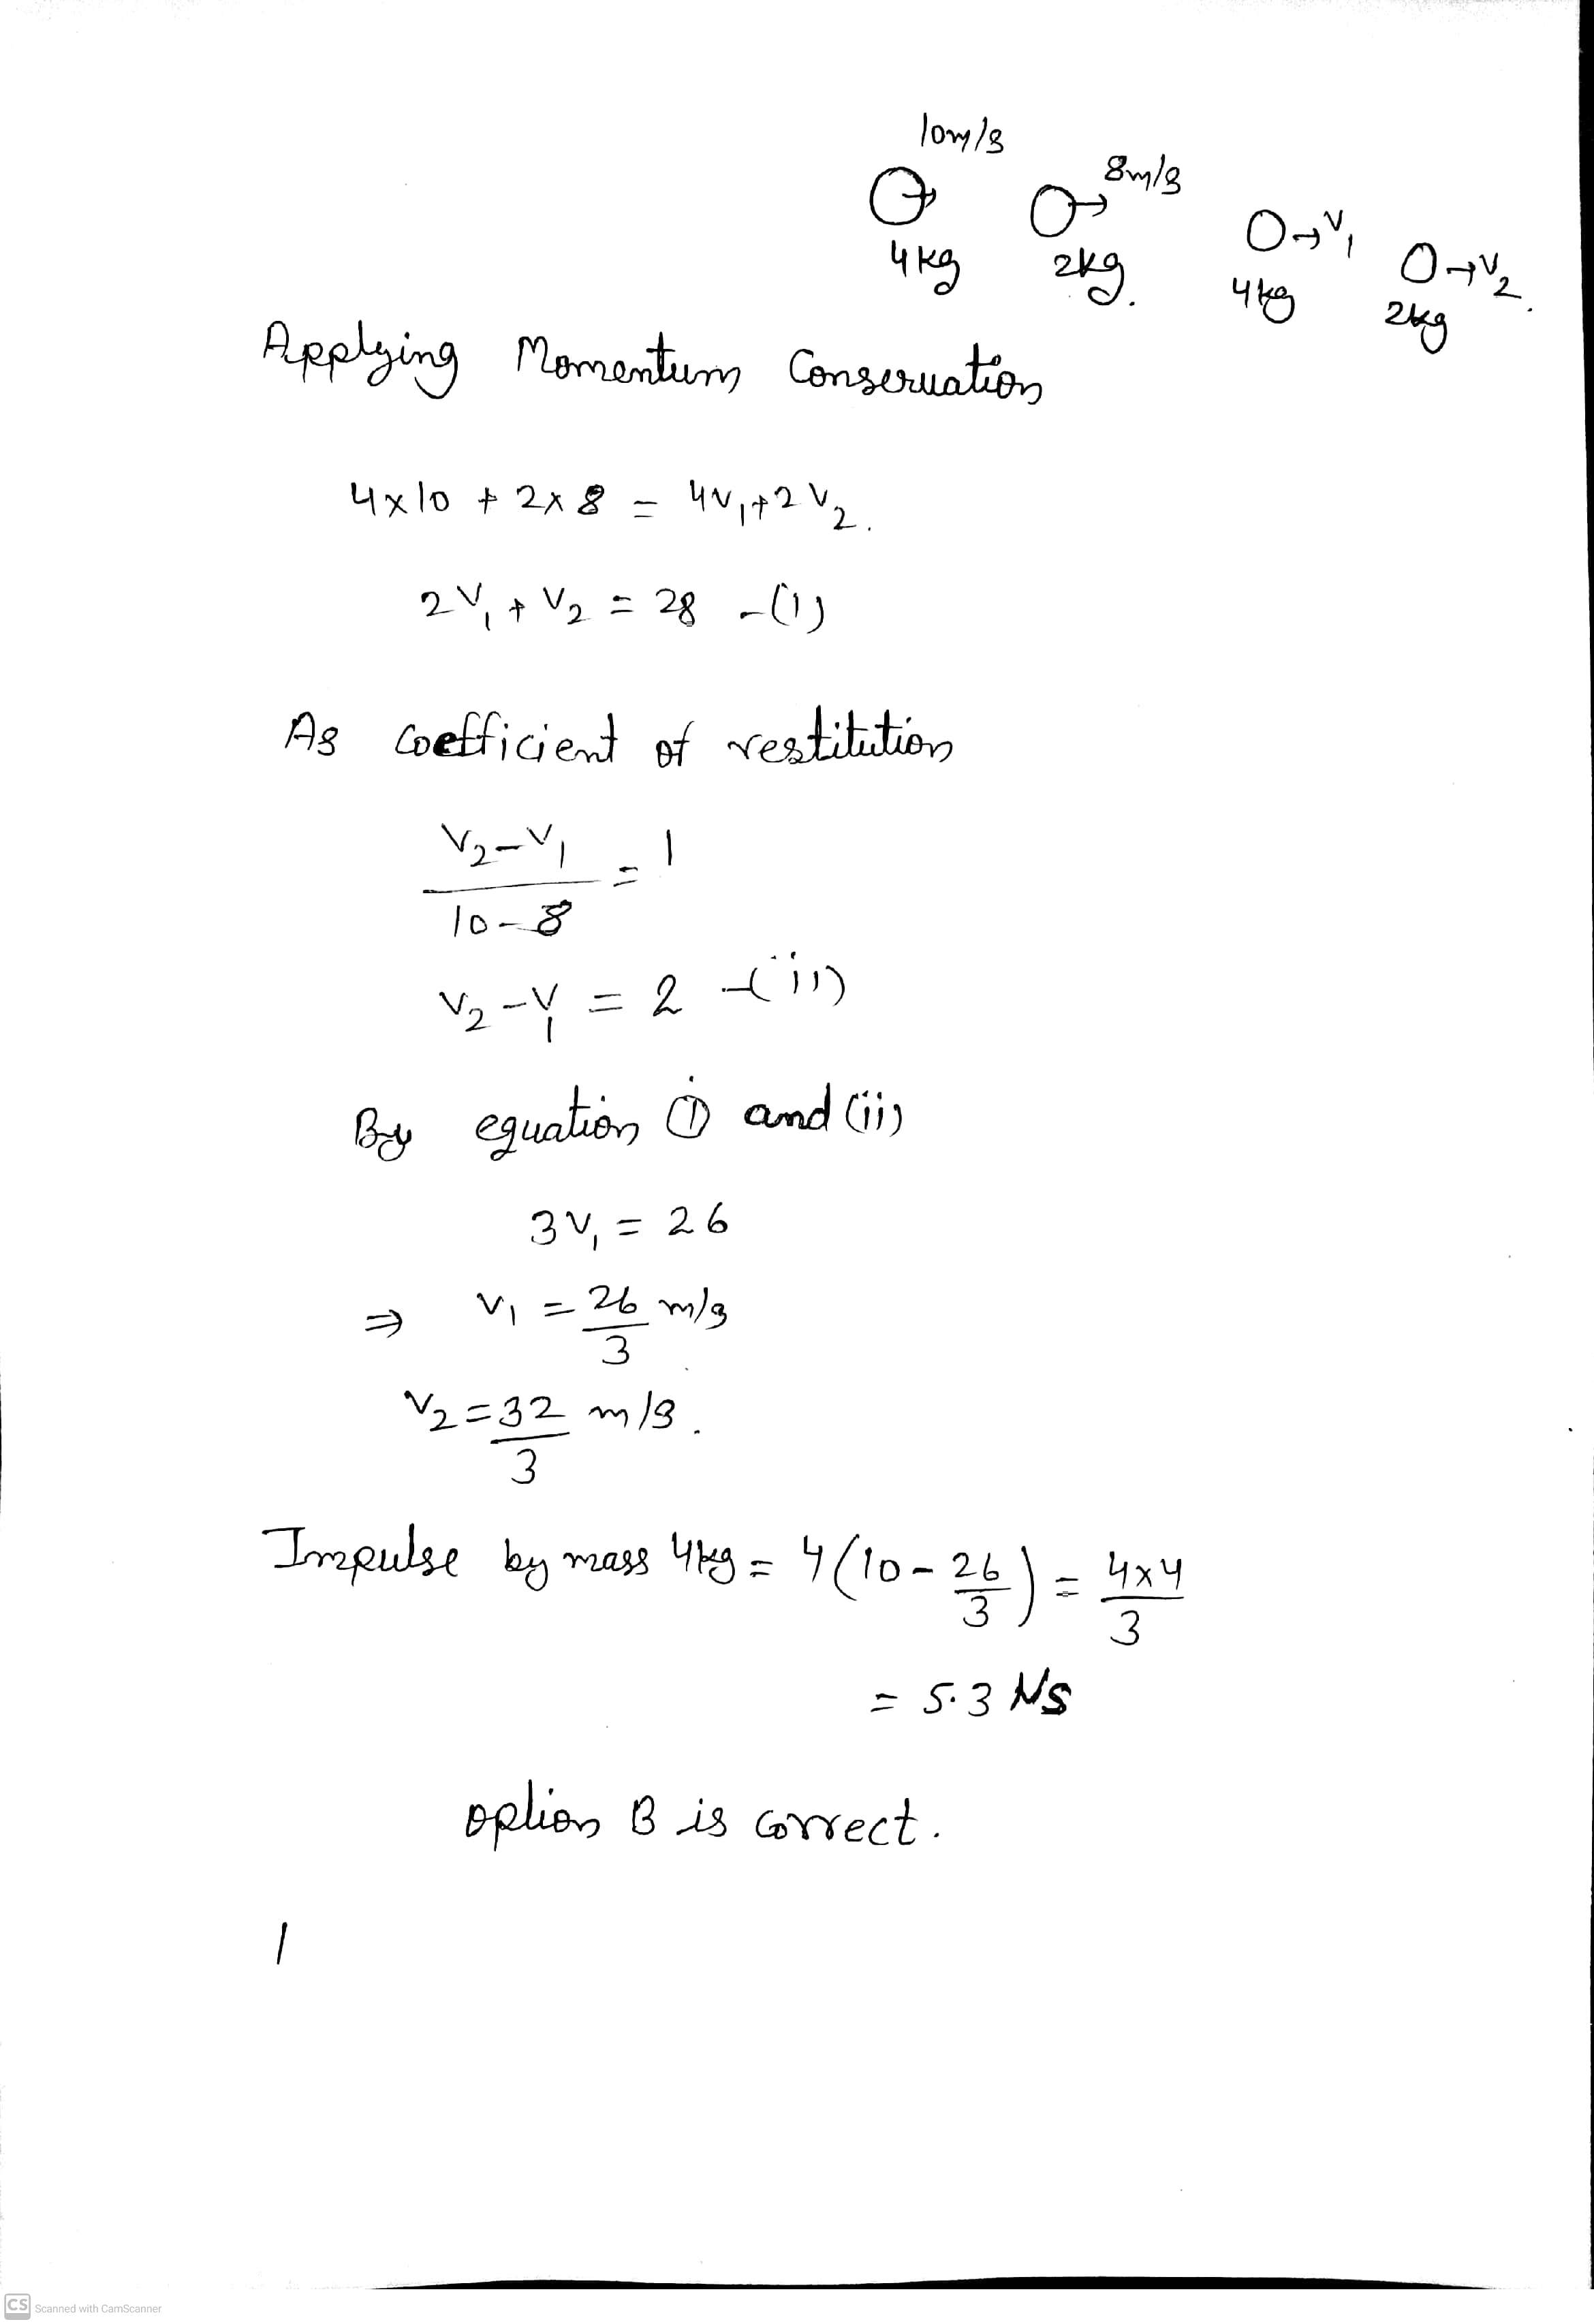 10m/s
8m/s
4kg
2kg.
→V₁
→V₂.
4kg
2kg
Applying Momentum Conservation
4×10 + 2×8 = 4V₁+2V₂.
2V₁ + V₂ = 28 -(i)
As coefficient of restitution
V₂-V₁/10-8 = 1
V₂-V₁ = 2 -(ii)
By equation (i) and (ii)
3V₁ = 26
⇒ V₁ = 26/3 m/s
V₂ = 32/3 m/s.
Impulse by mass 4kg = 4(10 - 26/3) = 4×4/3
= 5.3 Ns
option B is correct.
CS Scanned with CamScanner